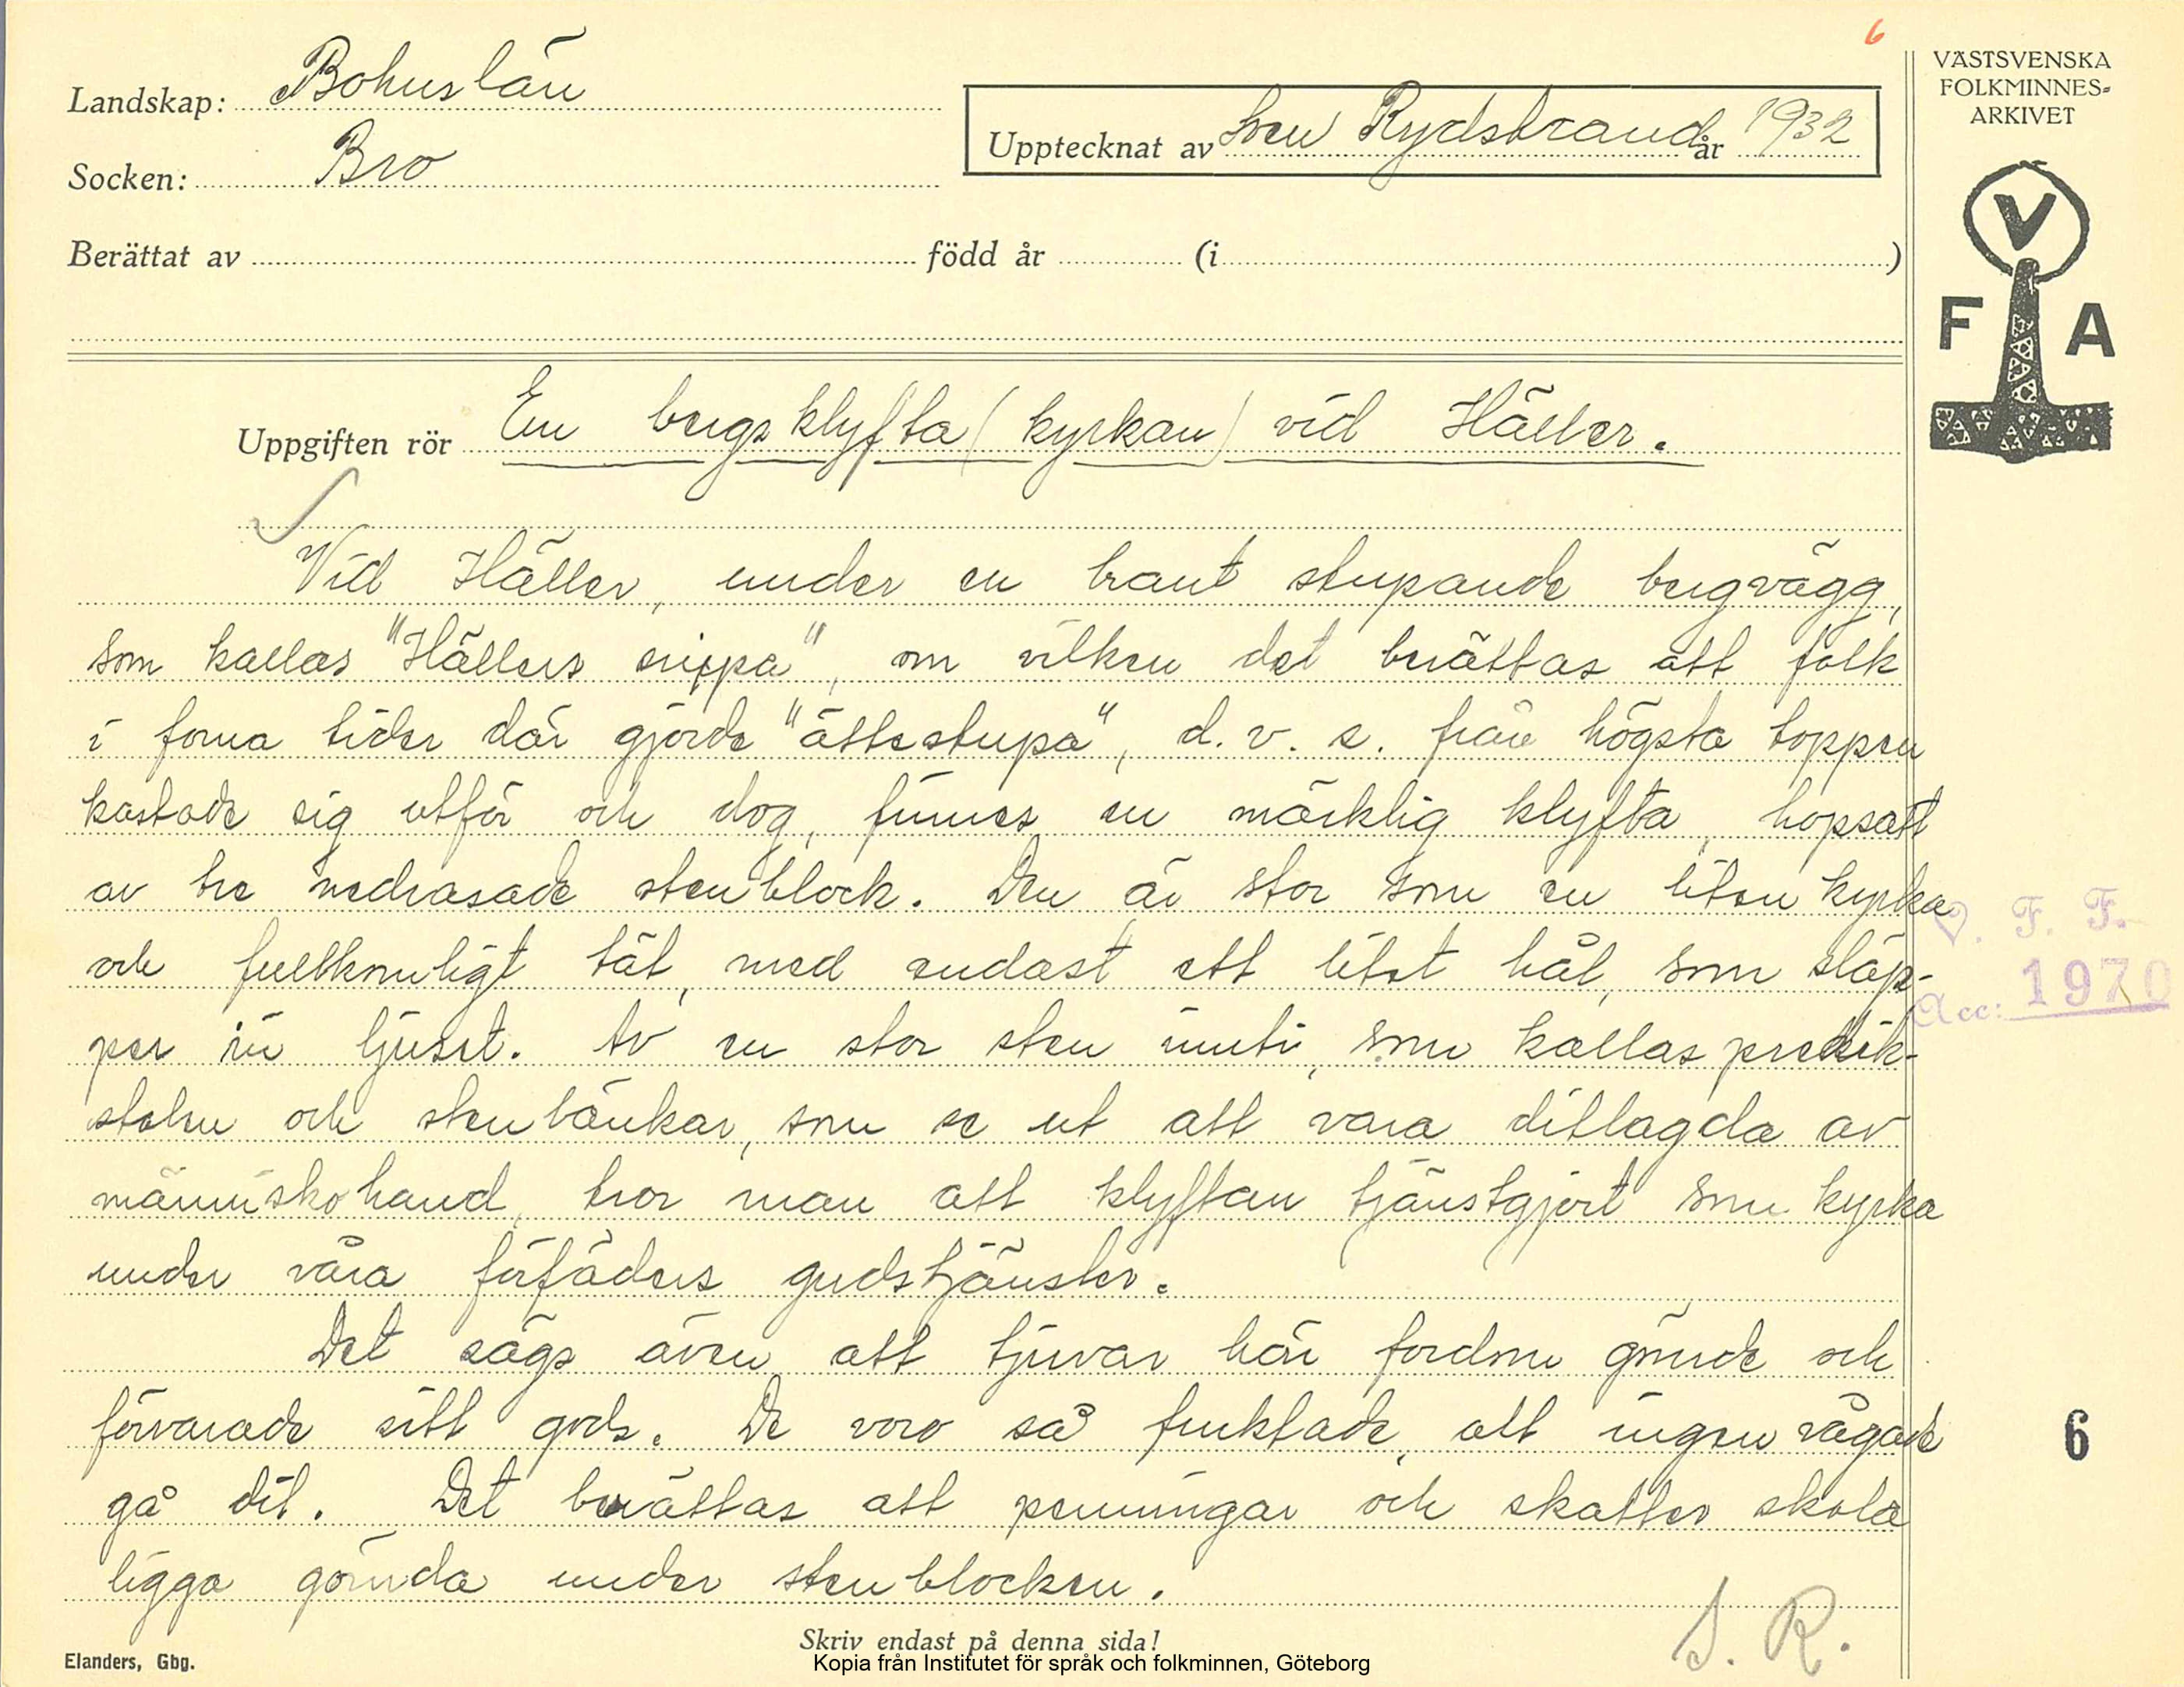 6
Landskap: Bohuslän
Socken: Bro
Upptecknat av Sven Rydstrand år 1932
Berättat av född år (i )
VÄSTSVENSKA
FOLKMINNES-
ARKIVET
V
F A
Uppgiften rör En bergsklyfta (kyrkan) vid Häller.
Vid Häller, under en brant stupande bergvägg,
som kallas "Hällers snippa", om vilken det berättas att folk
i forna tider där gjorde "ättestupa", d. v. s. från högsta toppen
kastade sig utför och dog, finnes en märklig klyfta, hopsatt
av tre nedrasade stenblock. Den är stor som en liten kyrka
och fullkomligt tät, med endast ett litet hål, som släp-
per in ljuset. Av en stor sten inuti, som kallas predik-
stolen och stenbänkar, som se ut att vara ditlagda av
människohand, tror man att klyftan tjänstgjort som kyrka
under våra förfäders gudstjänster.
Det sägs även att tjuvar här fordom gömde och
förvarade sitt gods. De voro så fruktade, att ingen vågade
gå dit. Det berättas att penningar och skatter skola
ligga gömda under stenblocken.
V. F. F.
Acc: 1970
6
S. R.
Skriv endast på denna sida!
Elanders, Gbg.
Kopia från Institutet för språk och folkminnen, Göteborg